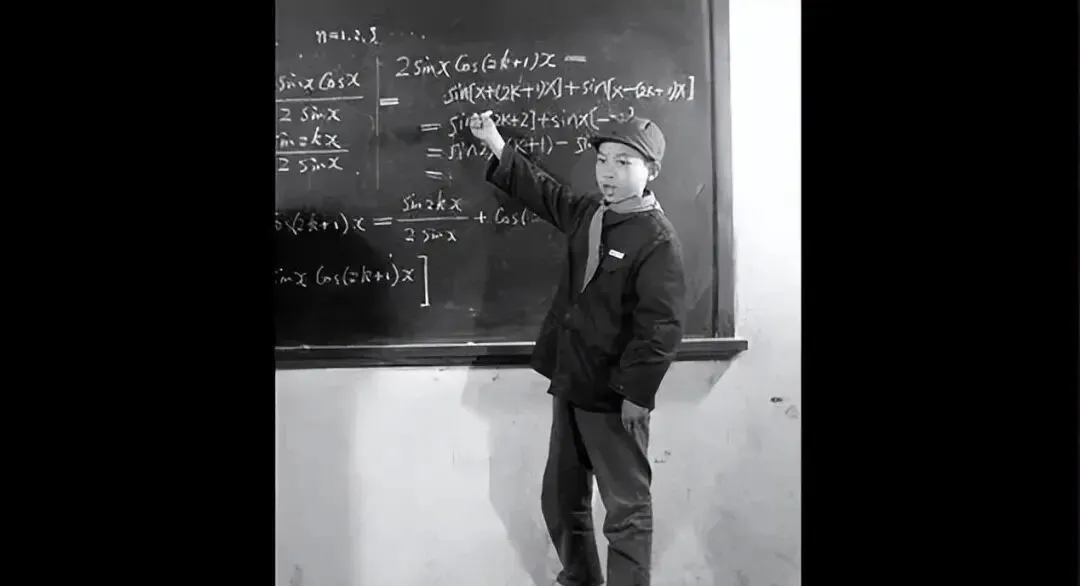 n=1.2.3. ....
sinx cosx
2 sinx
=
sin2kx
2 sinx
2 sinx cos(2k+1)x =
sin[x+(2k+1)x]+sin[x-(2k+1)x]
= sin 2k+2]+sinx[-
= sin2 (k+1) -
=
(2k+1)x = sin2kx / 2 sinx + cos(
sinx cos(2k+1)x]